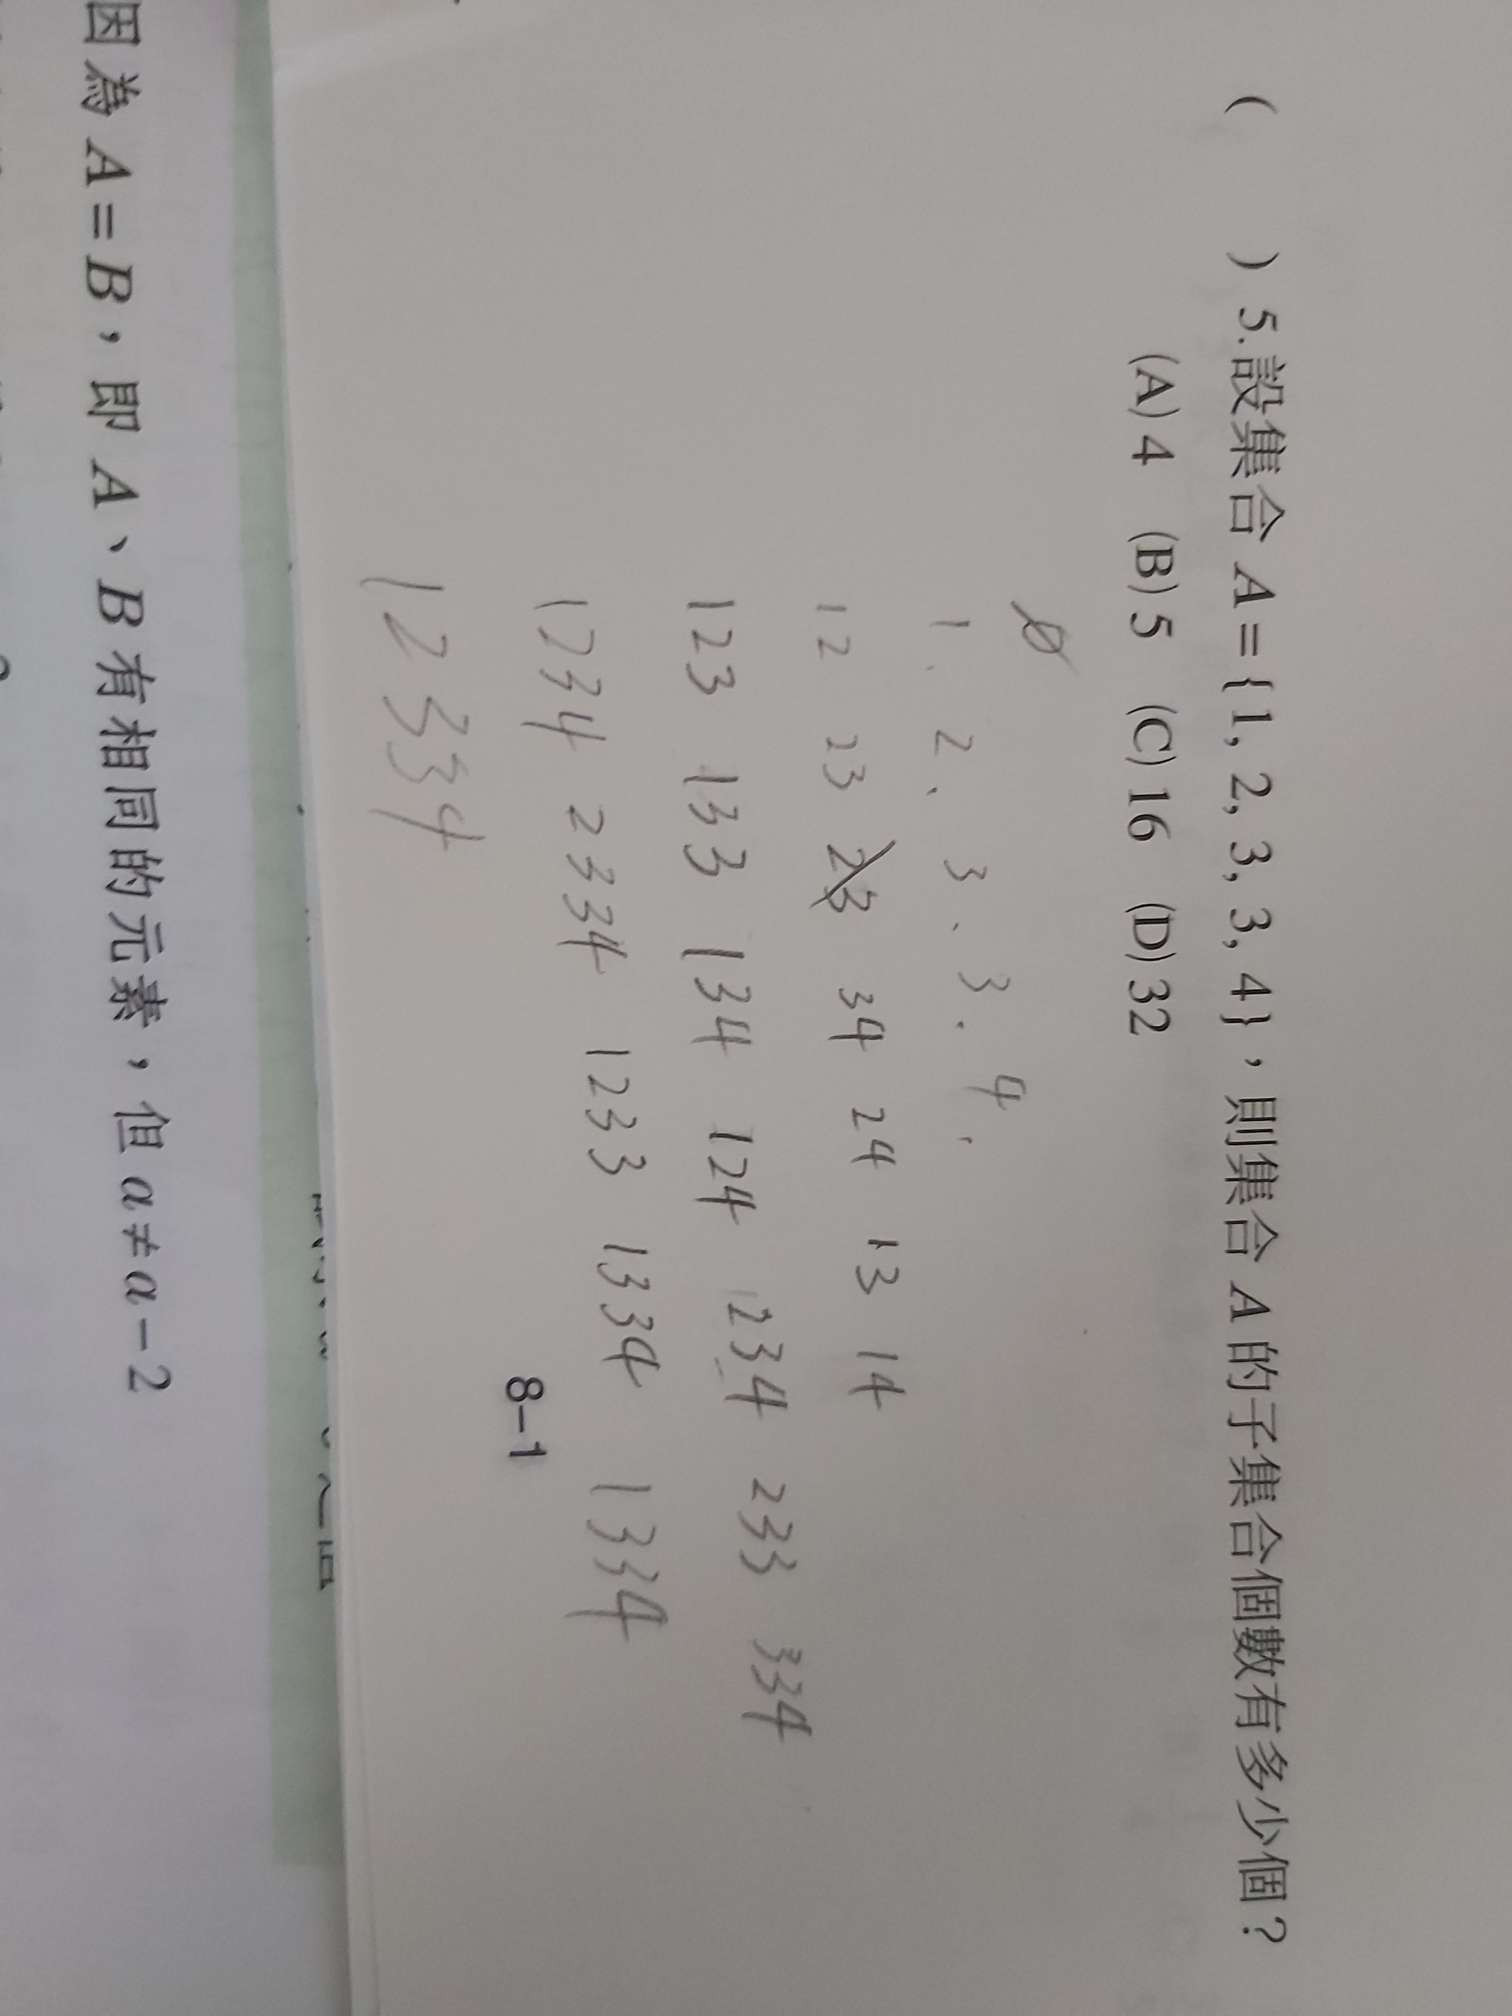 (　　) 5.設集合 A={1, 2, 3, 3, 4}，則集合 A 的子集合個數有多少個?
(A) 4 (B) 5 (C) 16 (D) 32
∅
1. 2. 3. 3. 4.
12 23 23 34 24 13 14
123 133 134 124 234 233 334
1234 2334 1233 1334 1334
12334
8-1
因為 A=B，即 A、B 有相同的元素，但 a≠a-2